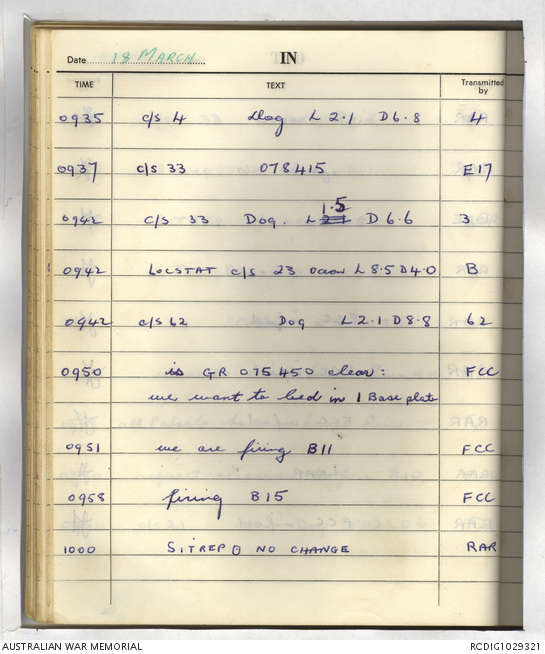 Date 18 MARCH IN
TIME TEXT Transmitted by
0935 c/s 4 Dog L 2.1 D 6.8 4
0937 c/s 33 078415 E17
1.5
0942 c/s 33 Dog. L 2.1 D 6.6 3
0942 LOCSTAT c/s 23 L 8.5 D 4.0 B
0942 c/s 62 Dog L 2.1 D 8.8 62
0950 is GR 075450 clear: FCC
we want to bed in 1 Base plate
0951 we are firing B11 FCC
0958 firing B15 FCC
1000 SITREP NO CHANGE RAR
AUSTRALIAN WAR MEMORIAL RCDIG1029321